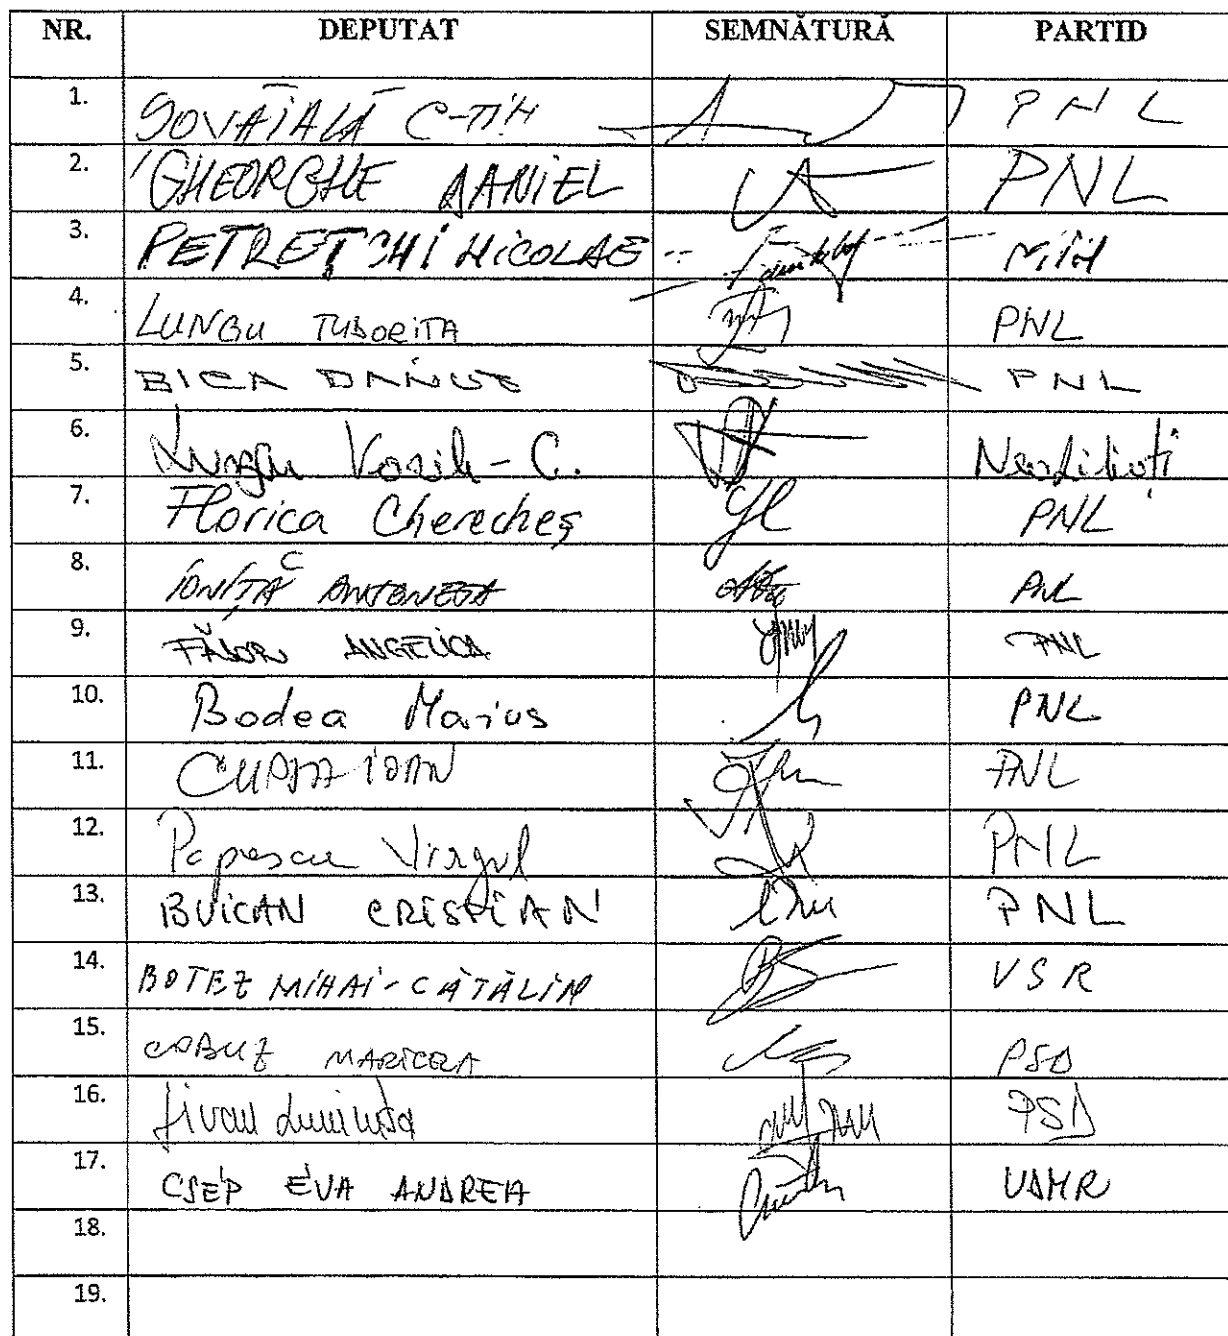 NR. DEPUTAT SEMNĂTURĂ PARTID
1. ȘOVĂIALĂ C-TIN PNL
2. GHEORGHE DANIEL PNL
3. PETREȚCHI NICOLAE
4. LUNGU TUDORIȚA PNL
5. BICA DĂNUȚ PNL
6. Lungu Vasile-C. Neafiliați
7. Florica Cherecheș PNL
8. IONIȚĂ ANTONETA PNL
9. FĂDOR ANGELICA PNL
10. Bodea Marius PNL
11. CUPȘA IOAN PNL
12. Popescu Virgil PNL
13. BUICAN CRISTIAN PNL
14. BOTEZ MIHAI-CĂTĂLIN USR
15. COBUZ MARICELA PSD
16. Jivan Luminița PSD
17. CSEP EVA ANDREA UDMR
18.
19.